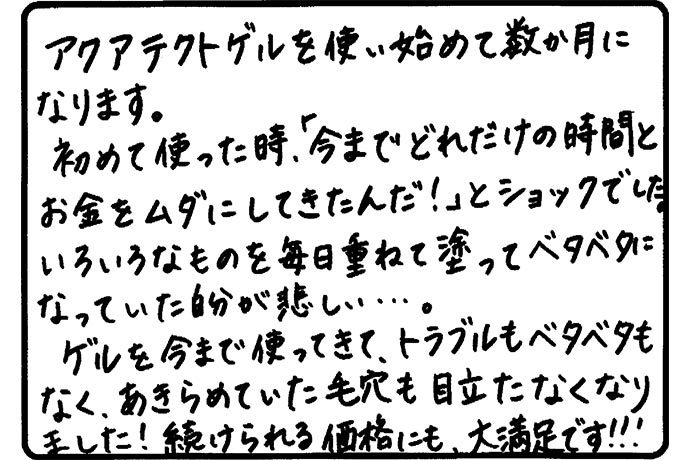 アクアテクトゲルを使い始めて数か月に
なります。
初めて使った時、「今までどれだけの時間と
お金をムダにしてきたんだ!」とショックでした。
いろいろなものを毎日重ねて塗ってベタベタに
なっていた自分が悲しい…。
ゲルを今まで使ってきて、トラブルもベタベタも
なく、あきらめていた毛穴も目立たなくなり
ました!続けられる価格にも、大満足です!!!